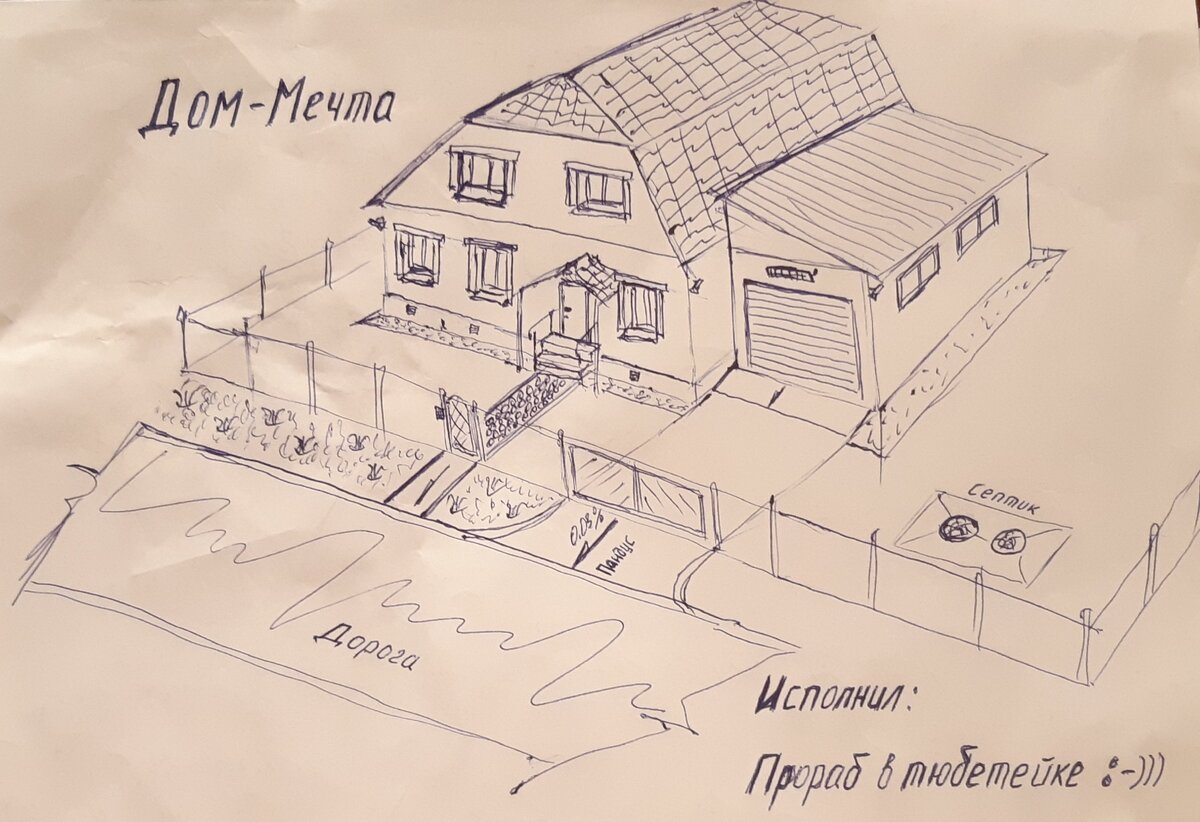 Дом-Мечта
Септик
0.03%
Пандус
Дорога
Исполнил:
Прораб в тюбетейке :-)))